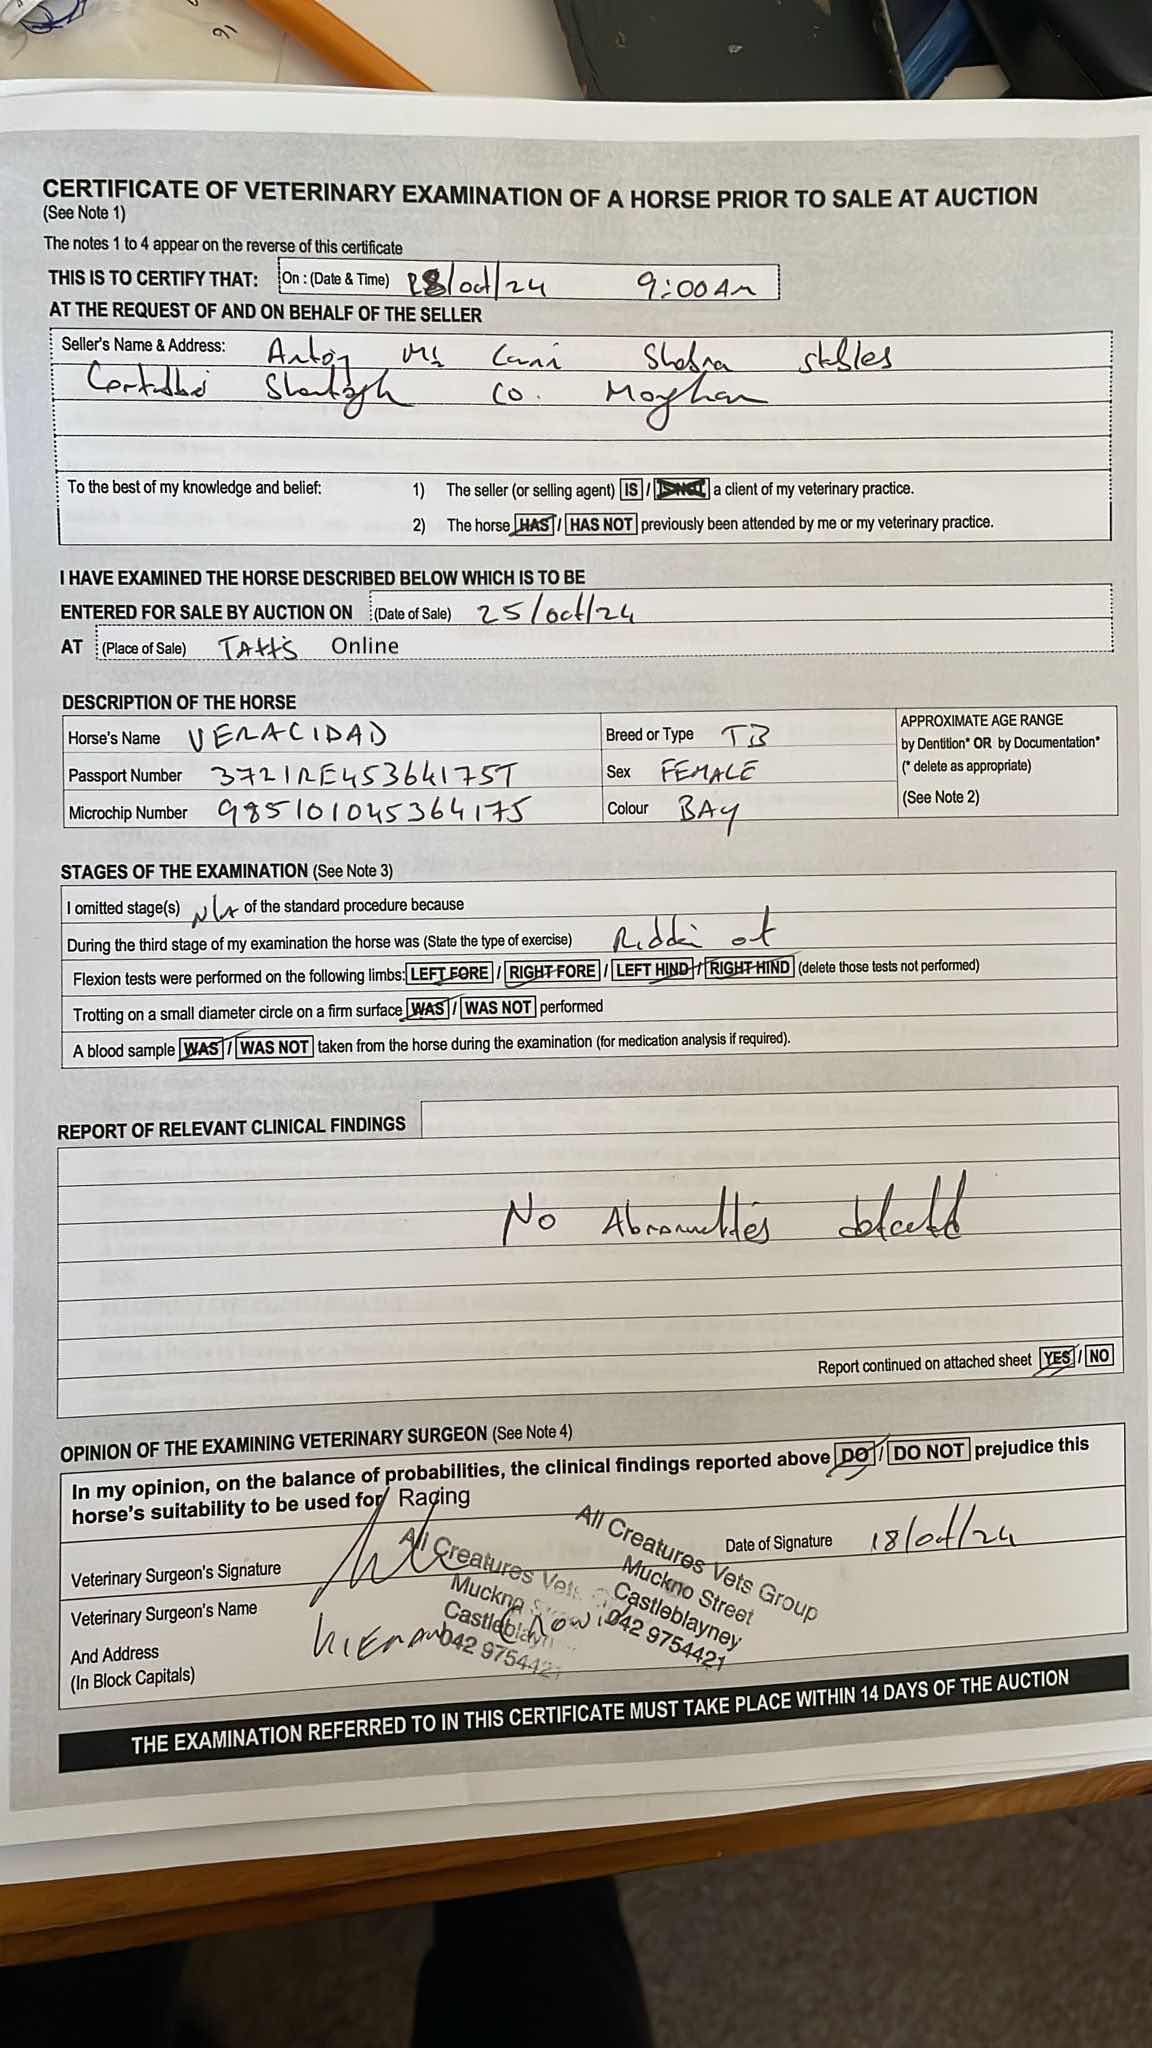 16
CERTIFICATE OF VETERINARY EXAMINATION OF A HORSE PRIOR TO SALE AT AUCTION
(See Note 1)
The notes 1 to 4 appear on the reverse of this certificate
THIS IS TO CERTIFY THAT: On : (Date & Time) /oct/24 9:00AM
AT THE REQUEST OF AND ON BEHALF OF THE SELLER
Seller's Name & Address: stables
Co.
To the best of my knowledge and belief: 1) The seller (or selling agent) IS / IS NOT a client of my veterinary practice.
2) The horse HAS / HAS NOT previously been attended by me or my veterinary practice.
I HAVE EXAMINED THE HORSE DESCRIBED BELOW WHICH IS TO BE
ENTERED FOR SALE BY AUCTION ON (Date of Sale) 25/oct/24
AT (Place of Sale) TATTS Online
DESCRIPTION OF THE HORSE
Horse's Name VERACIDAD Breed or Type TB APPROXIMATE AGE RANGE
by Dentition* OR by Documentation*
Passport Number 372IRE45364175T Sex FEMALE (* delete as appropriate)
Microchip Number 985101045364175 Colour BAY (See Note 2)
STAGES OF THE EXAMINATION (See Note 3)
I omitted stage(s) N/A of the standard procedure because
During the third stage of my examination the horse was (State the type of exercise) Ridden at
Flexion tests were performed on the following limbs: LEFT FORE / RIGHT FORE / LEFT HIND / RIGHT HIND (delete those tests not performed)
Trotting on a small diameter circle on a firm surface WAS / WAS NOT performed
A blood sample WAS / WAS NOT taken from the horse during the examination (for medication analysis if required).
REPORT OF RELEVANT CLINICAL FINDINGS
No Abnormalities detected
Report continued on attached sheet YES / NO
OPINION OF THE EXAMINING VETERINARY SURGEON (See Note 4)
In my opinion, on the balance of probabilities, the clinical findings reported above DO / DO NOT prejudice this
horse's suitability to be used for Racing
Veterinary Surgeon's Signature Date of Signature 18/oct/24
Veterinary Surgeon's Name
And Address
(In Block Capitals)
KIERAN
All Creatures Vets
Muckno
Castleblayn
042 9754421
All Creatures Vets Group
Muckno Street
Castleblayney
042 9754421
THE EXAMINATION REFERRED TO IN THIS CERTIFICATE MUST TAKE PLACE WITHIN 14 DAYS OF THE AUCTION